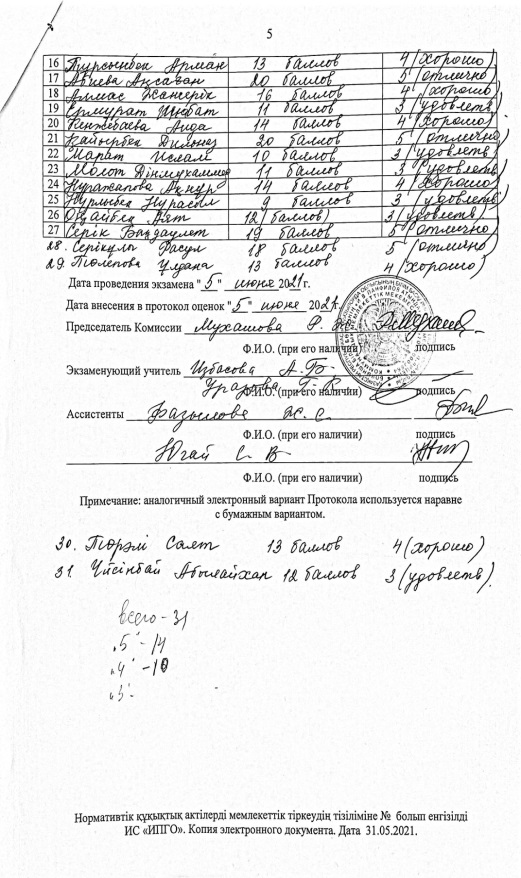 5
16 Тұрсынбек Арман 13 баллов 4 (хорошо)
17 Абиева Ақсаған 20 баллов 5 (отлично)
18 Алмас Жангерек 16 баллов 4 (хорошо)
19 Ермурат Інбат 11 баллов 3 (удовлетв)
20 Кенжебаева Аида 14 баллов 4 (хорошо)
21 Қайырбек Дильназ 20 баллов 5 (отлично)
22 Марат Ислам 10 баллов 3 (удовлетв)
23 Молот Дінмухаммед 11 баллов 3 (удовлетв)
24 Нуржапова Ақнур 14 баллов 4 (хорошо)
25 Нурлыбек Нурасыл 9 баллов 3 (удовлетв)
26 12 (баллов) 3 (удовлетв)
27 Серік Бақдаулет 19 баллов 5 (отлично)
28. Серікұлы Расул 18 баллов 5 (отлично)
29. Төлепова Улдана 13 баллов 4 (хорошо)
Дата проведения экзамена "5" июне 2021г.
Дата внесения в протокол оценок "5" июне 2021г.
Председатель Комиссии Мухашова Р.
Ф.И.О. (при его наличии) подпись
Экзаменующий учитель Избасова А.Б.
Уразова Г.
Ф.И.О. (при его наличии) подпись
Ассистенты Фазылова Ж. С.
Ф.И.О. (при его наличии) подпись
Югай С. В
Ф.И.О. (при его наличии) подпись
Примечание: аналогичный электронный вариант Протокола используется наравне
с бумажным вариантом.
30. Төрәлі Саят 13 баллов 4 (хорошо)
31. Үйсінбай Абылайхан 12 баллов 3 (удовлетв).
всего - 31
"5" - 14
"4" - 10
"3" -
Нормативтік құқықтық актілерді мемлекеттік тіркеудің тізіліміне № болып енгізілді
ИС «ИПГО». Копия электронного документа. Дата 31.05.2021.